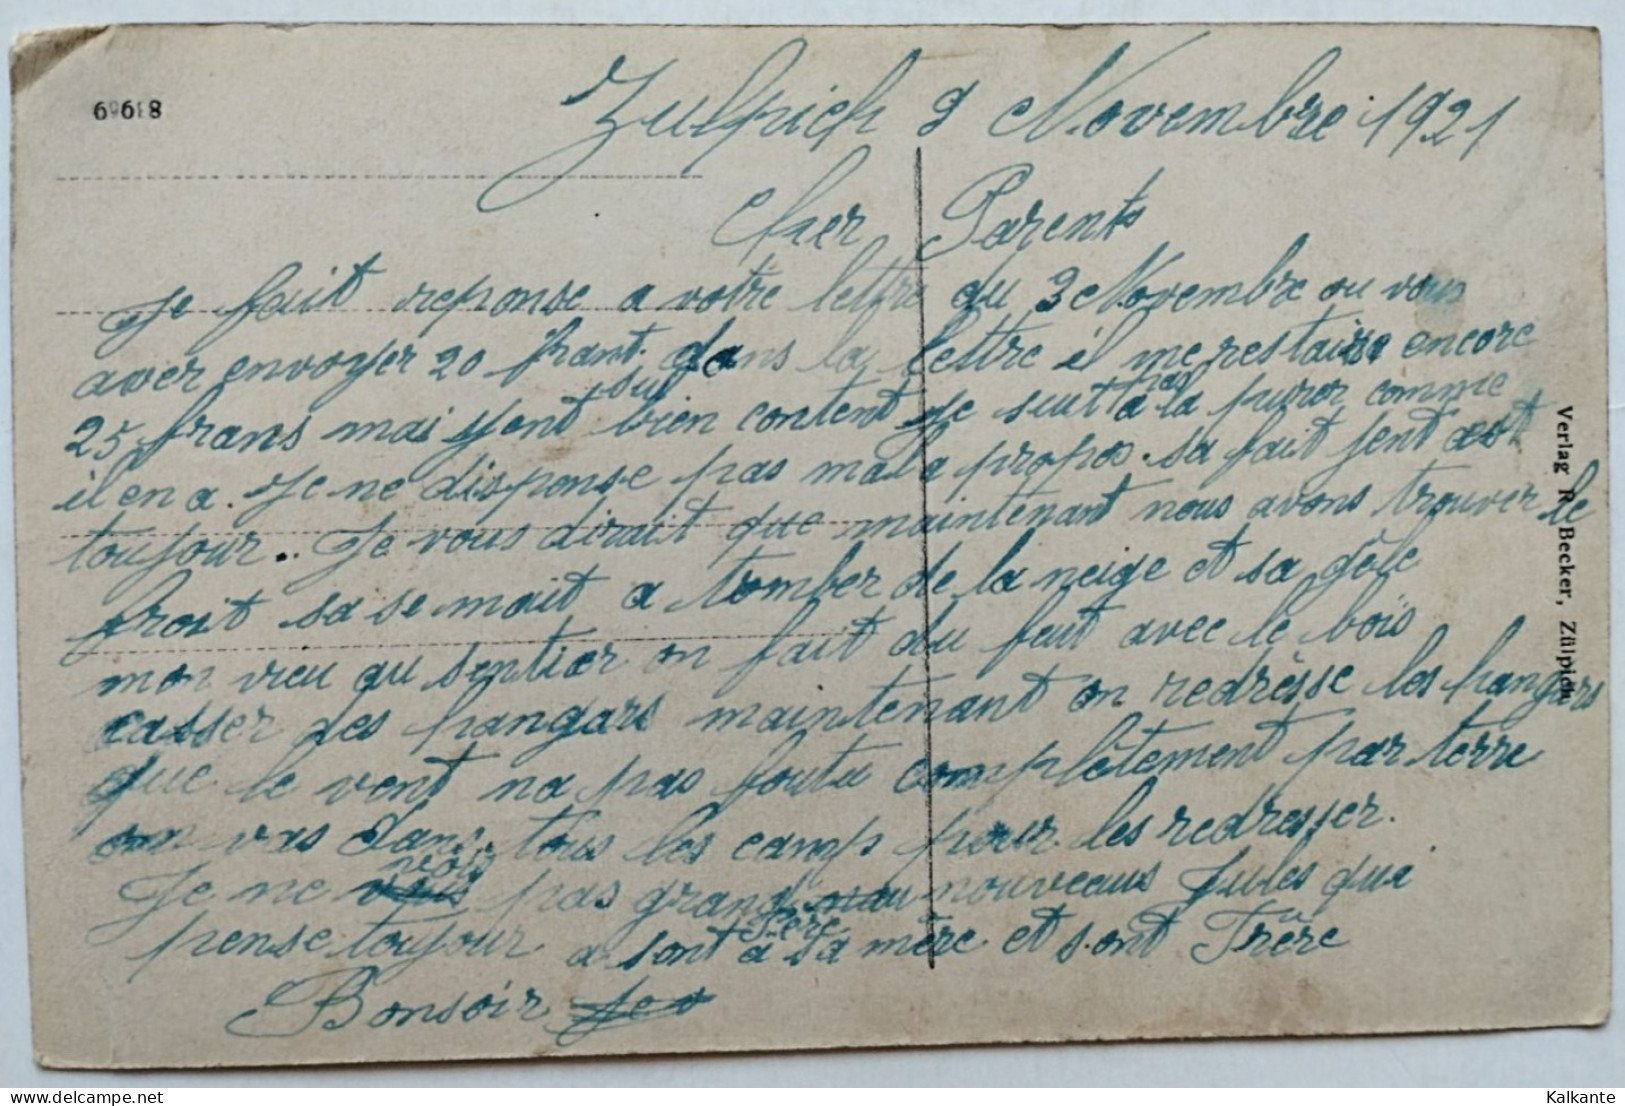 69618
Zulpich 9 Novembre 1921
Cher Parents
Je fait reponse a votre lettre du 3 Novembre ou vous
aver envoyer 20 frant. dans la lettre il me restaire encore
25 frans mai jent suit bien content je suit pas a la purer comme
il en a. Je ne dispense pas mal a propos. sa fait jent
toujour.. Je vous dirait que maintenant nous avons trouver le
froit sa se mait a tomber de la neige et sa gèle
mon vieu au sentier on fait du feut avec le bois
casser des hangars maintenant on redrèsse les hangars
que le vent na pas foutu complètement par terre
on vas dans tous les camp pour les redresser.
Je ne voit pas grand nouveaus Jules qui
pense toujour a sont Père à sa mère et sont Frère
Bonsoir
Verlag R. Becker, Zülpich
Kalkante